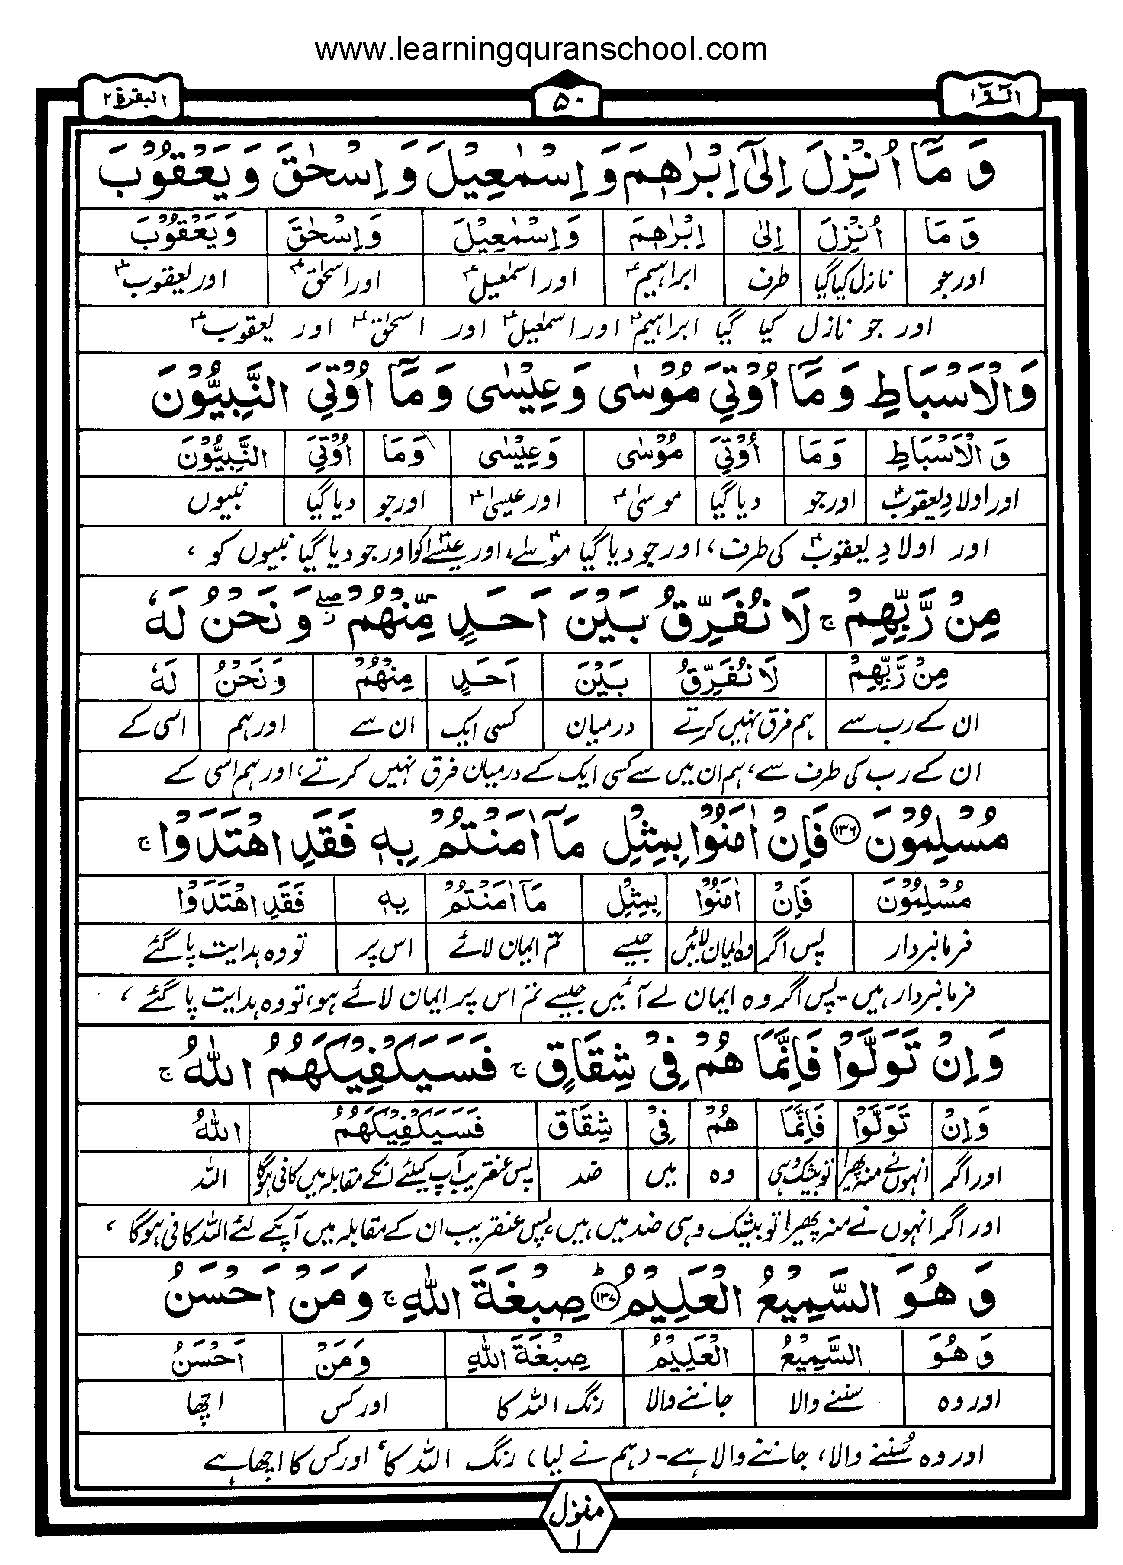 www.learningquranschool.com
الٓمّٓ ۱
۵۰
البقرة ۲
وَ مَاۤ اُنْزِلَ اِلٰۤى اِبْرٰهٖمَ وَ اِسْمٰعِیْلَ وَ اِسْحٰقَ وَ یَعْقُوْبَ
وَ مَا اُنْزِلَ اِلٰى اِبْرٰهٖمَ وَ اِسْمٰعِیْلَ وَ اِسْحٰقَ وَ یَعْقُوْبَ
اور جو نازل کیا گیا طرف ابراہیمؑ اور اسمٰعیلؑ اور اسحٰقؑ اور یعقوبؑ
اور جو نازل کیا گیا ابراہیمؑ اور اسمٰعیلؑ اور اسحٰقؑ اور یعقوبؑ
وَالْاَسْبَاطِ وَ مَاۤ اُوْتِیَ مُوْسٰى وَ عِیْسٰى وَ مَاۤ اُوْتِیَ النَّبِیُّوْنَ
وَ الْاَسْبَاطِ وَ مَا اُوْتِیَ مُوْسٰى وَ عِیْسٰى وَ مَا اُوْتِیَ النَّبِیُّوْنَ
اور اولادِ یعقوبؑ اور جو دیا گیا موسیٰؑ اور عیسیٰؑ اور جو دیا گیا نبیوں
اور اولادِ یعقوبؑ کی طرف، اور جو دیا گیا موسیٰؑ، اور عیسیٰؑ کو اور جو دیا گیا نبیوں کو ،
مِنْ رَّبِّهِمْ ۚ لَا نُفَرِّقُ بَیْنَ اَحَدٍ مِّنْهُمْ ۖ وَ نَحْنُ لَهٗ
مِنْ رَّبِّهِمْ لَا نُفَرِّقُ بَیْنَ اَحَدٍ مِنْهُمْ وَ نَحْنُ لَهٗ
ان کے رب سے ہم فرق نہیں کرتے درمیان کسی ایک ان سے اور ہم اسی کے
ان کے رب کی طرف سے، ہم ان میں سے کسی ایک کے درمیان فرق نہیں کرتے، اور ہم اسی کے
مُسْلِمُوْنَ ۱۳۶ فَاِنْ اٰمَنُوْا بِمِثْلِ مَاۤ اٰمَنْتُمْ بِهٖ فَقَدِ اهْتَدَوْا ۚ
مُسْلِمُوْنَ فَاِنْ اٰمَنُوْا بِمِثْلِ مَا اٰمَنْتُمْ بِهٖ فَقَدِ اهْتَدَوْا
فرمانبردار پس اگر وہ ایمان لائیں جیسے تم ایمان لائے اس پر تو وہ ہدایت پا گئے
فرمانبردار ہیں۔ پس اگر وہ ایمان لے آئیں جیسے تم اس پر ایمان لائے ہو، تو وہ ہدایت پا گئے ،
وَ اِنْ تَوَلَّوْا فَاِنَّمَا هُمْ فِیْ شِقَاقٍ ۚ فَسَیَكْفِیْكَهُمُ اللّٰهُ ۚ
وَ اِنْ تَوَلَّوْا فَاِنَّمَا هُمْ فِیْ شِقَاقٍ فَسَیَكْفِیْكَهُمُ اللّٰهُ
اور اگر انہوں نے منہ پھیرا تو بیشک وہی وہ میں ضد پس عنقریب آپ کیلئے انکے مقابلہ میں کافی ہوگا اللہ
اور اگر انہوں نے منہ پھیرا تو بیشک وہی ضد میں ہیں، پس عنقریب ان کے مقابلہ میں آپکے لئے اللہ کافی ہوگا ،
وَ هُوَ السَّمِیْعُ الْعَلِیْمُ ؕ ۱۳۷ صِبْغَةَ اللّٰهِ ۚ وَ مَنْ اَحْسَنُ
وَ هُوَ السَّمِیْعُ الْعَلِیْمُ صِبْغَةَ اللّٰهِ وَ مَنْ اَحْسَنُ
اور وہ سننے والا جاننے والا رنگ اللہ کا اور کس اچھا
اور وہ سُننے والا، جاننے والا ہے۔ (ہم نے لیا) رنگ اللہ کا، اور کس کا اچھا ہے
منزل ۱